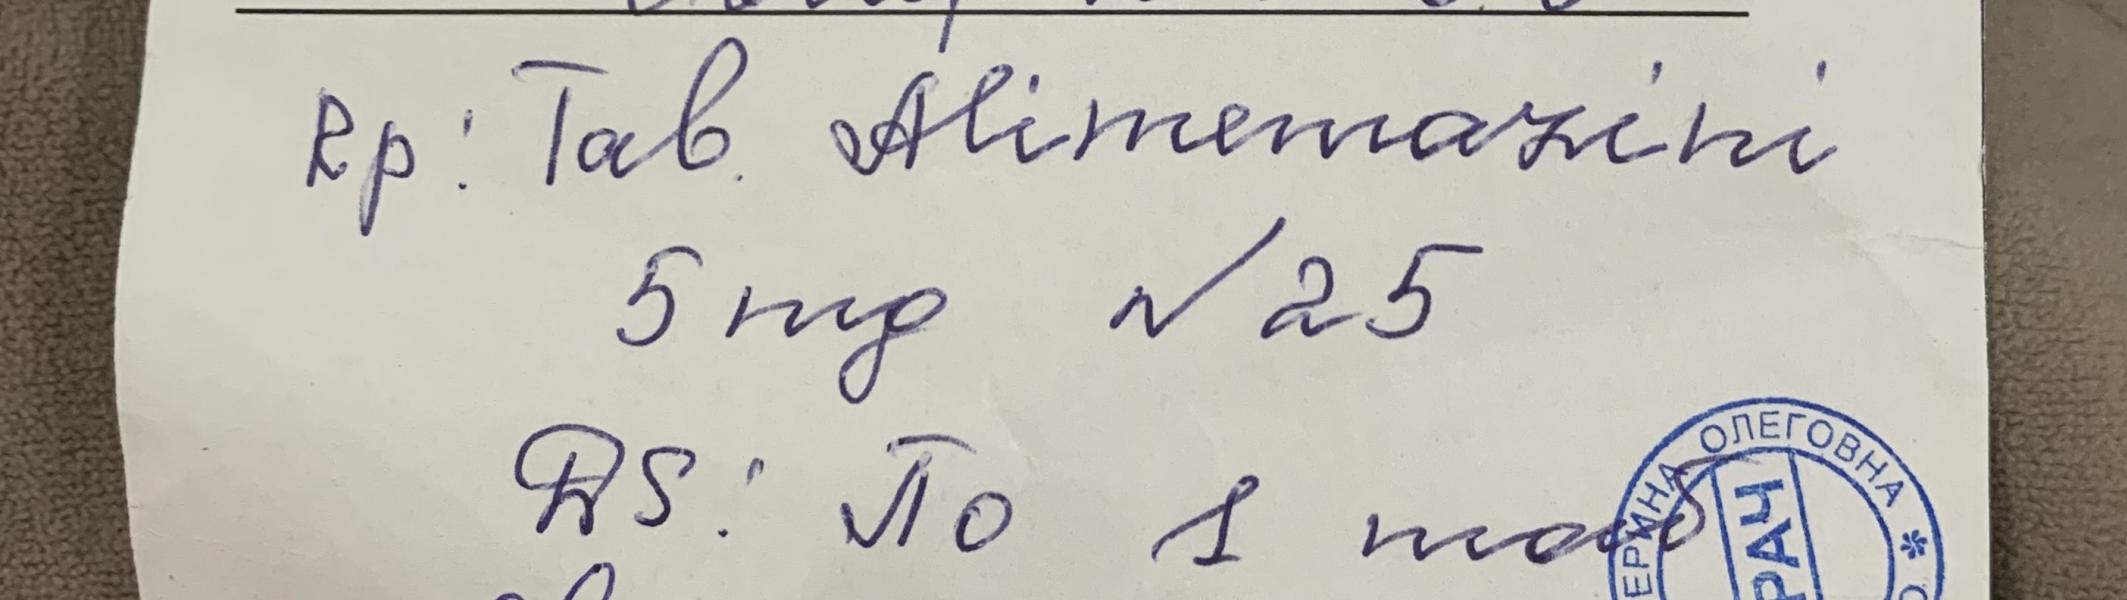 Rp: Tab. Alimemazini
5 mg №25
DS: По 1 таб
ЕРИНА ОЛЕГОВНА *
РАЧ